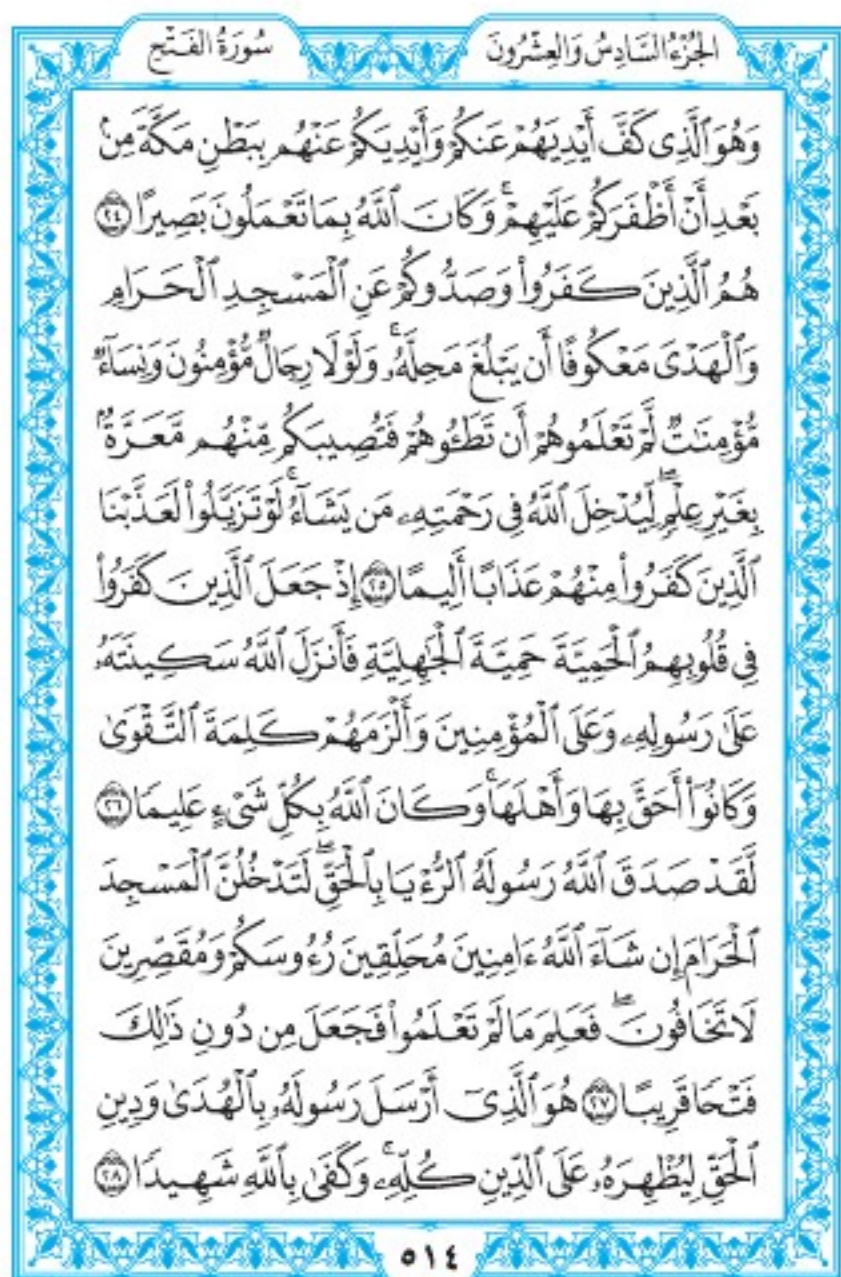 الجُزْءُ السَّادِسُ وَالعِشْرُونَ
سُورَةُ الفَتْحِ
وَهُوَ ٱلَّذِى كَفَّ أَيْدِيَهُمْ عَنكُمْ وَأَيْدِيَكُمْ عَنْهُم بِبَطْنِ مَكَّةَ مِنۢ
بَعْدِ أَنْ أَظْفَرَكُمْ عَلَيْهِمْۚ وَكَانَ ٱللَّهُ بِمَا تَعْمَلُونَ بَصِيرًا ٢٤
هُمُ ٱلَّذِينَ كَفَرُوا۟ وَصَدُّوكُمْ عَنِ ٱلْمَسْجِدِ ٱلْحَرَامِ
وَٱلْهَدْىَ مَعْكُوفًا أَن يَبْلُغَ مَحِلَّهُۥۚ وَلَوْلَا رِجَالٌ مُّؤْمِنُونَ وَنِسَآءٌ
مُّؤْمِنَٰتٌ لَّمْ تَعْلَمُوهُمْ أَن تَطَـُٔوهُمْ فَتُصِيبَكُم مِّنْهُم مَّعَرَّةٌۢ
بِغَيْرِ عِلْمٍۖ لِّيُدْخِلَ ٱللَّهُ فِى رَحْمَتِهِۦ مَن يَشَآءُۚ لَوْ تَزَيَّلُوا۟ لَعَذَّبْنَا
ٱلَّذِينَ كَفَرُوا۟ مِنْهُمْ عَذَابًا أَلِيمًا ٢٥ إِذْ جَعَلَ ٱلَّذِينَ كَفَرُوا۟
فِى قُلُوبِهِمُ ٱلْحَمِيَّةَ حَمِيَّةَ ٱلْجَٰهِلِيَّةِ فَأَنزَلَ ٱللَّهُ سَكِينَتَهُۥ
عَلَىٰ رَسُولِهِۦ وَعَلَى ٱلْمُؤْمِنِينَ وَأَلْزَمَهُمْ كَلِمَةَ ٱلتَّقْوَىٰ
وَكَانُوٓا۟ أَحَقَّ بِهَا وَأَهْلَهَاۚ وَكَانَ ٱللَّهُ بِكُلِّ شَىْءٍ عَلِيمًا ٢٦
لَّقَدْ صَدَقَ ٱللَّهُ رَسُولَهُ ٱلرُّءْيَا بِٱلْحَقِّۖ لَتَدْخُلُنَّ ٱلْمَسْجِدَ
ٱلْحَرَامَ إِن شَآءَ ٱللَّهُ ءَامِنِينَ مُحَلِّقِينَ رُءُوسَكُمْ وَمُقَصِّرِينَ
لَا تَخَافُونَۖ فَعَلِمَ مَا لَمْ تَعْلَمُوا۟ فَجَعَلَ مِن دُونِ ذَٰلِكَ
فَتْحًا قَرِيبًا ٢٧ هُوَ ٱلَّذِىٓ أَرْسَلَ رَسُولَهُۥ بِٱلْهُدَىٰ وَدِينِ
ٱلْحَقِّ لِيُظْهِرَهُۥ عَلَى ٱلدِّينِ كُلِّهِۦۚ وَكَفَىٰ بِٱللَّهِ شَهِيدًا ٢٨
٥١٤